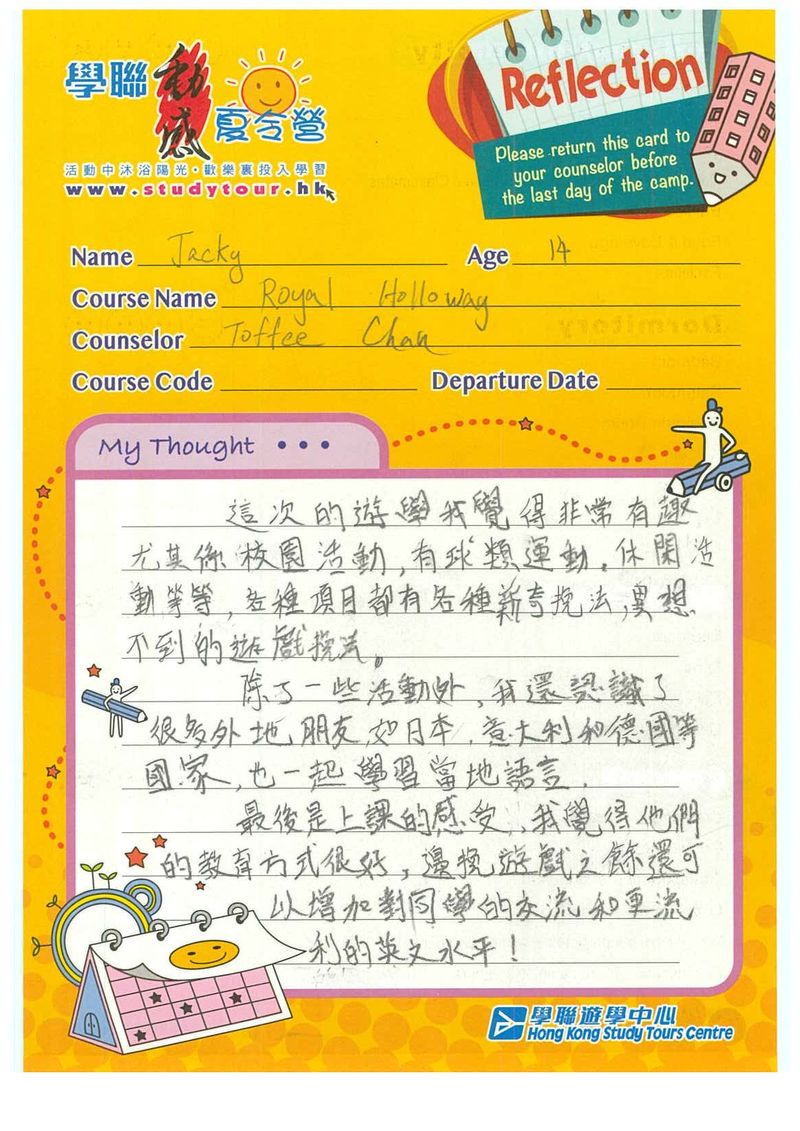 學聯動感夏令營
活動中沐浴陽光·歡樂裏投入學習
www.studytour.hk
Reflection
Please return this card to
your counselor before
the last day of the camp.
Name Jacky Age 14
Course Name Royal Holloway
Counselor Toffee Chan
Course Code Departure Date
My Thought • • •
這次的遊學我覺得非常有趣
尤其係校園活動,有球類運動。休閑活
動等等,各種項目都有各種新奇玩法,更想
不到的遊戲玩法。
除了一些活動外,我還認識了
很多外地朋友,如日本,意大利和德國等
國家,也一起學習當地語言.
最後是上課的感受,我覺得他們
的教育方式很好,邊玩遊戲之餘還可
以增加對同學的交流和更流
利的英文水平!
學聯遊學中心
Hong Kong Study Tours Centre